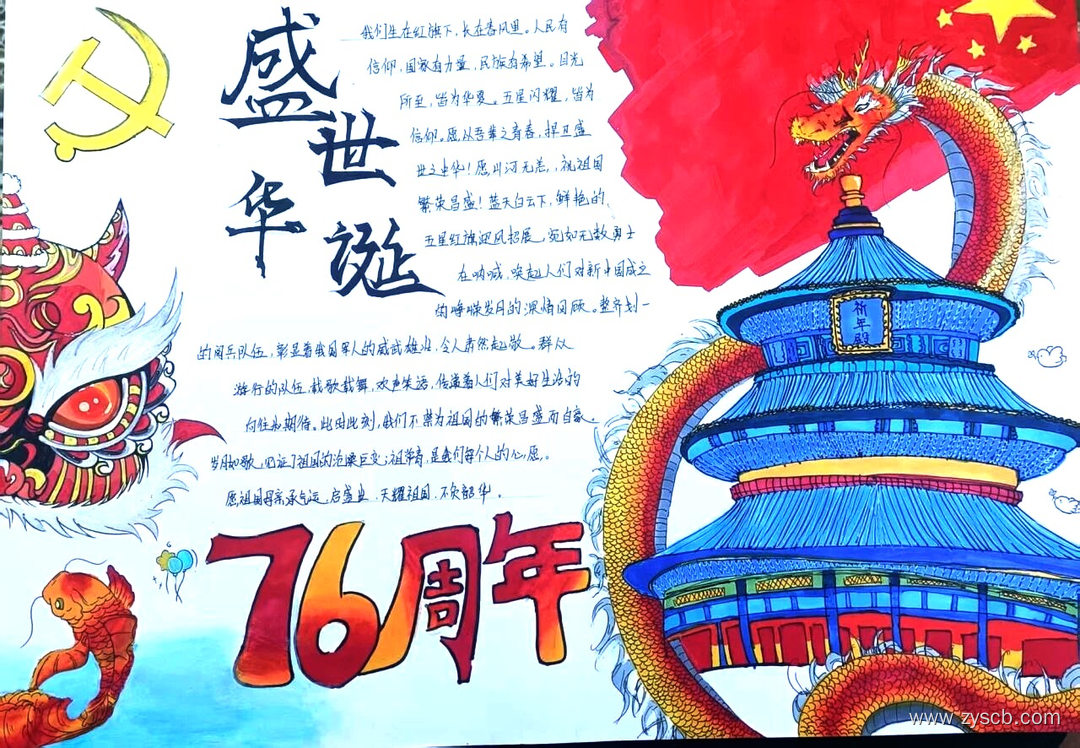 盛世华诞
我们生在红旗下，长在春风里。人民有
信仰，国家有力量，民族有希望。目光
所至，皆为华夏。五星闪耀，皆为
信仰。愿以吾辈之青春，捍卫盛
世之中华！愿山河无恙，祝祖国
繁荣昌盛！蓝天白云下，鲜艳的
五星红旗迎风招展，宛如无数勇士
在呐喊，唤起人们对新中国成立
的峥嵘岁月的深情回顾。整齐划一
的阅兵队伍，彰显着我国军人的威武雄壮，令人肃然起敬。群众
游行的队伍，载歌载舞，欢声笑语，传递着人们对美好生活的
向往和期待。此时此刻，我们不禁为祖国的繁荣昌盛而自豪。
岁月如歌，见证了祖国的沧桑巨变；祖华寿，是我们每个人的心愿。
愿祖国母亲承气运，启盛世，天耀祖国，不负韶华。
76周年
祈年殿
www.zyscb.com